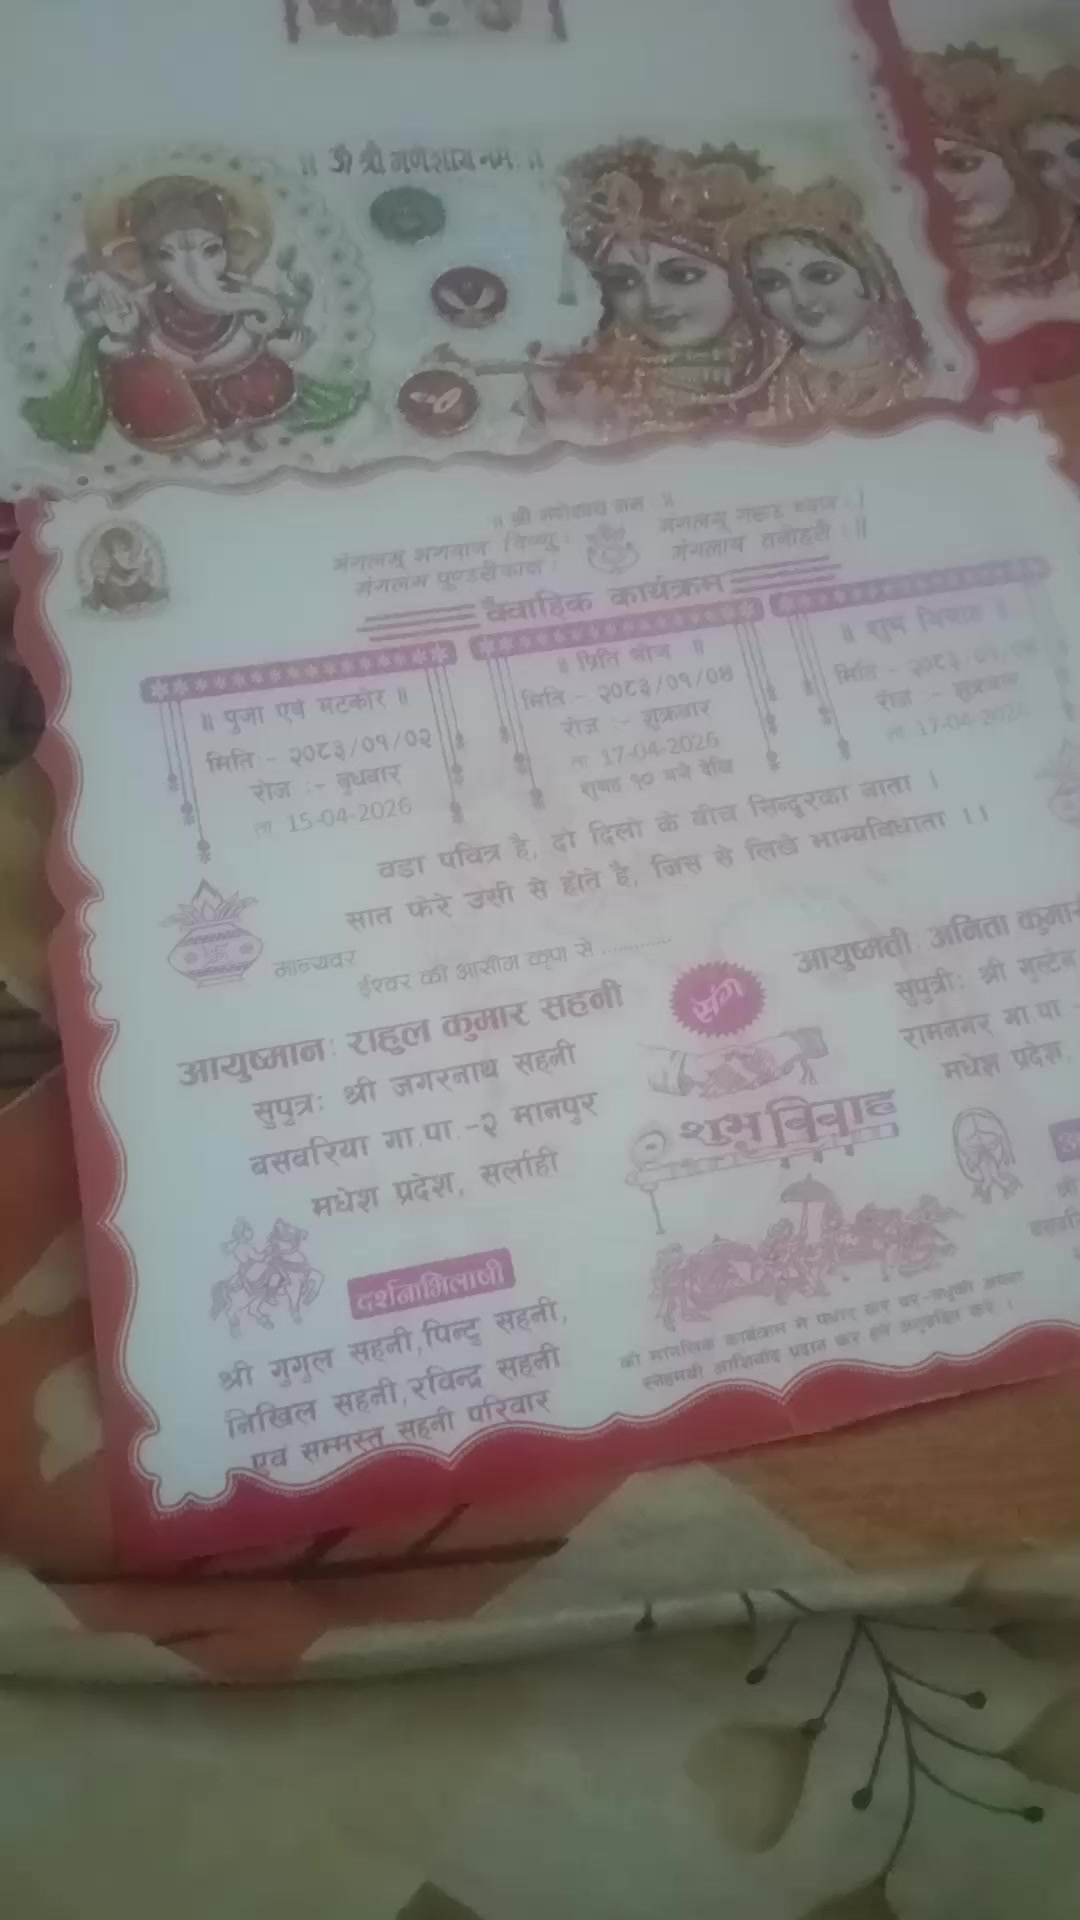 ॥ ॐ श्री गणेशाय नमः ॥
मंगलम् भगवान विष्णु :
मंगलम पूण्डरीकाक्ष :
वैवाहिक कार्यक्रम
॥ पुजा एवं मटकोर ॥
मिति:- २०८३/०१/०२
रोज :- बुधवार
ता 15-04-2026
॥ प्रिति भोज ॥
मिति - २०८३/०१/०४
रोज :- शुक्रबार
ता 17-04-2026
१० बजे देखि
॥ शुभ विवाह ॥
मिति - २०८३/०१/०४
रोज :- शुक्रबार
ता 17-04-2026
वडा पवित्र है, दो दिलो के बीच सिन्दुरका नाता ।
सात फेरे उसी से होते है, जिस से लिखे भाग्यविधाता ।।
मान्यवर
ईश्वर की आसीम कृपा से ............
आयुष्मान: राहुल कुमार सहनी
सुपुत्र: श्री जगरनाथ सहनी
बसबरिया गा.पा.-२ मानपुर
मधेश प्रदेश, सर्लाही
संग
शुभ विवाह
आयुष्मती: अनिता
सुपुत्री: श्री
रामनगर गा पा
मधेश प्रदेश,
दर्शनाभिलाषी
श्री गुगुल सहनी,पिन्टु सहनी,
निखिल सहनी,रविन्द्र सहनी
एवं सम्मस्त सहनी परिवार
की मांगलिक कार्यक्रम मे पधार कर वर-वधुको अपना
स्नेहमयी आर्शिवाद प्रदान कर हमे अनुग्रहित करे ।
श्री